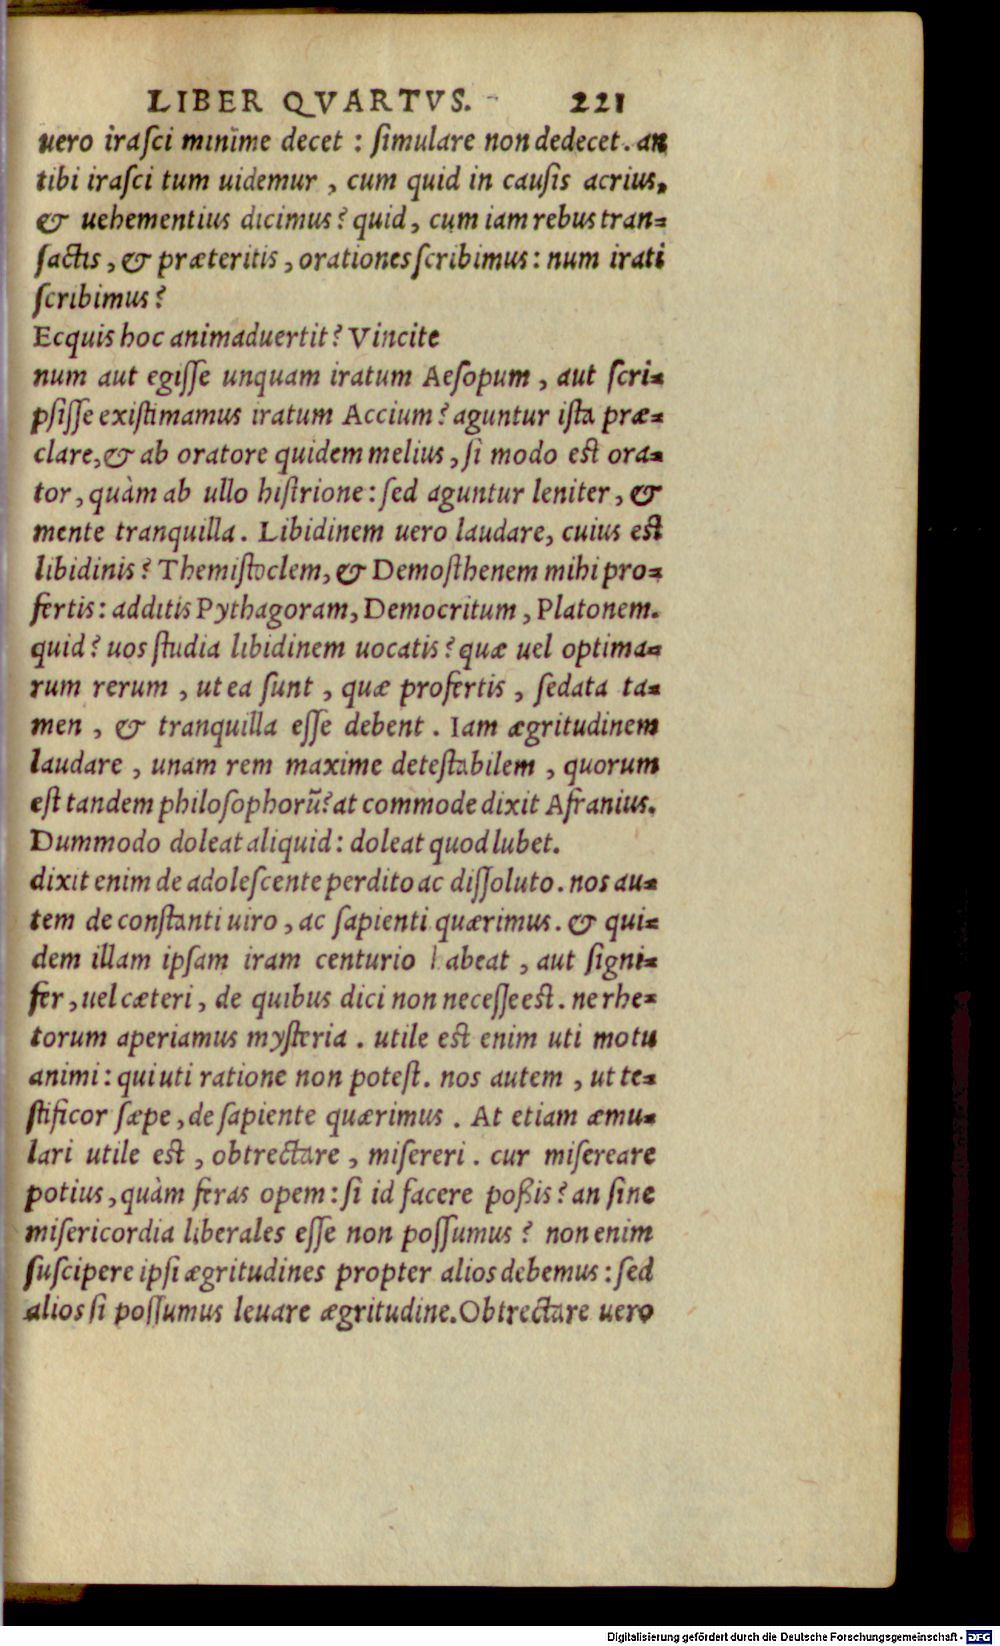 LIBER QVARTVS. 221
uero iraſci minime decet : ſimulare non dedecet. an
tibi iraſci tum uidemur , cum quid in cauſis acrius,
& uehementius dicimus? quid, cum iam rebus tran=
ſactis , & præteritis , orationes ſcribimus: num irati
ſcribimus?
Ecquis hoc animaduertit? Vincite
num aut egiſſe unquam iratum Aeſopum , aut ſcri=
pſiſſe exiſtimamus iratum Accium? aguntur iſta præ=
clare, & ab oratore quidem melius , ſi modo est ora=
tor , quàm ab ullo hiſtrione: ſed aguntur leniter , &
mente tranquilla. Libidinem uero laudare, cuius est
libidinis? Themiſtoclem, & Demoſthenem mihi pro=
fertis: additis Pythagoram, Democritum , Platonem.
quid? uos ſtudia libidinem uocatis? quæ uel optima=
rum rerum , ut ea ſunt , quæ profertis , ſedata ta=
men , & tranquilla eſſe debent . Iam ægritudinem
laudare , unam rem maxime deteſtabilem , quorum
est tandem philoſophorũ? at commode dixit Afranius.
Dummodo doleat aliquid: doleat quod lubet.
dixit enim de adoleſcente perdito ac diſſoluto. nos au=
tem de conſtanti uiro , ac ſapienti quærimus. & qui=
dem illam ipſam iram centurio habeat , aut ſigni=
fer , uel cæteri , de quibus dici non neceſſe est. ne rhe=
torum aperiamus myſteria . utile est enim uti motu
animi: qui uti ratione non poteſt. nos autem , ut te=
ſtificor ſæpe , de ſapiente quærimus . At etiam æmu=
lari utile est , obtrectare , miſereri . cur miſereare
potius , quàm feras opem: ſi id facere poßis? an ſine
miſericordia liberales eſſe non poſſumus? non enim
ſuſcipere ipſi ægritudines propter alios debemus: ſed
alios ſi poſſumus leuare ægritudine. Obtrectare uero
Digitalisierung gefördert durch die Deutsche Forschungsgemeinschaft - DFG